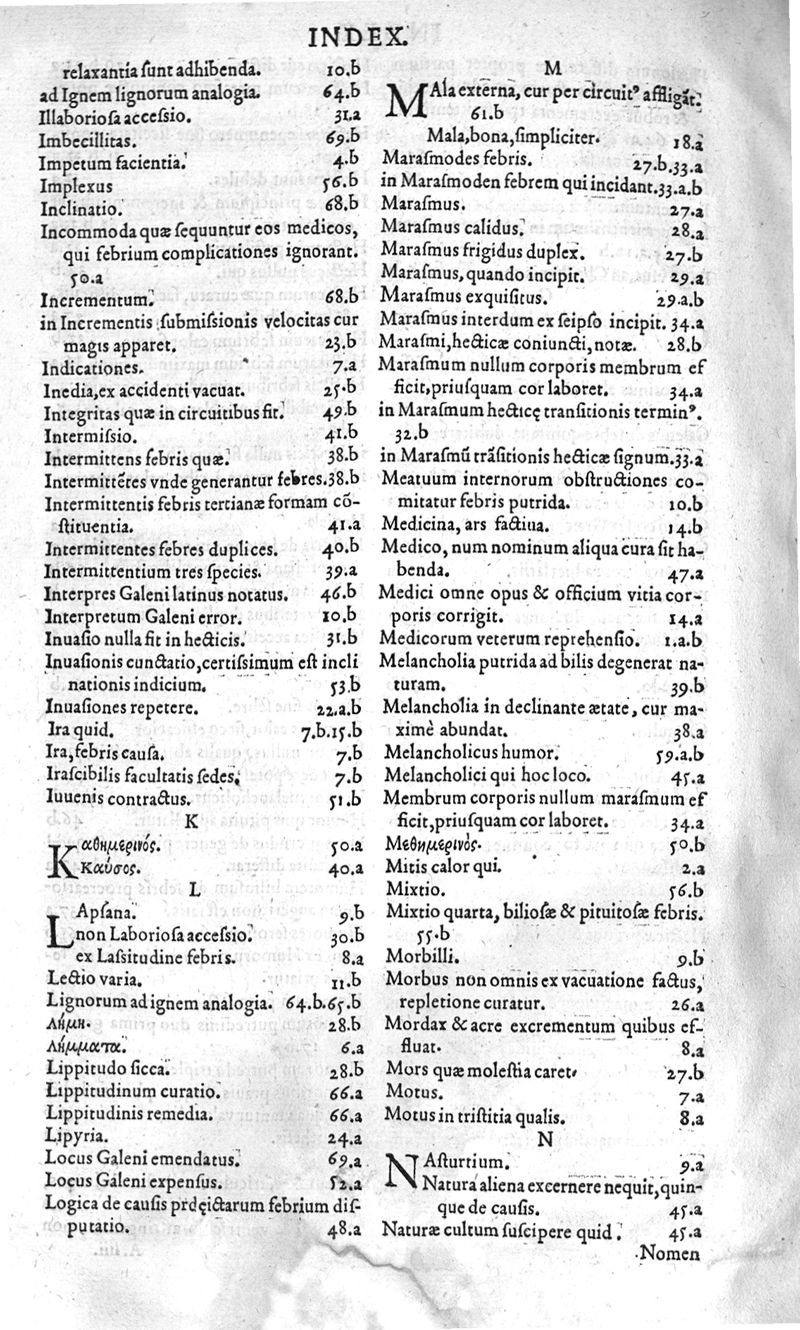 INDEX.
relaxantia ſunt adhibenda. 10.b
ad Ignem lignorum analogia. 64.b
Illaborioſa acceſsio. 31.a
Imbecillitas. 69.b
Impetum facientia. 4.b
Implexus 56.b
Inclinatio. 68.b
Incommoda quæ ſequuntur eos medicos,
qui febrium complicationes ignorant.
50.a
Incrementum. 68.b
in Incrementis ſubmiſsionis velocitas cur
magis apparet. 23.b
Indicationes. 7.a
Inedia, ex accidenti vacuat. 25.b
Integritas quæ in circuitibus fit. 49.b
Intermiſsio. 41.b
Intermittens febris quæ. 38.b
Intermittẽtes vnde generantur febres. 38.b
Intermittentis febris tertianæ formam cõ-
ſtituentia. 41.a
Intermittentes febres duplices. 40.b
Intermittentium tres ſpecies. 39.a
Interpres Galeni latinus notatus. 46.b
Interpretum Galeni error. 10.b
Inuaſio nulla fit in hecticis. 31.b
Inuaſionis cunctatio, certiſsimum eſt incli
nationis indicium. 53.b
Inuaſiones repetere. 22.a.b
Ira quid. 7.b.15.b
Ira, febris cauſa. 7.b
Iraſcibilis facultatis ſedes. 7.b
Iuuenis contractus. 51.b
K
Καθημερινός. 50.a
Καύσος. 40.a
L
LApſana. 9.b
non Laborioſa acceſsio. 30.b
ex Laſsitudine febris. 8.a
Lectio varia. 11.b
Lignorum ad ignem analogia. 64.b.65.b
Λήμη. 28.b
Λήμματα. 6.a
Lippitudo ſicca. 28.b
Lippitudinum curatio. 66.a
Lippitudinis remedia. 66.a
Lipyria. 24.a
Locus Galeni emendatus. 69.a
Locus Galeni expenſus. 52.a
Logica de cauſis prdęictarum febrium diſ-
putatio. 48.a
M
MAla externa, cur per circuitꝰ affligãt.
61.b
Mala, bona, ſimpliciter. 18.a
Maraſmodes febris. 27.b.33.a
in Maraſmoden febrem qui incidant. 33.a.b
Maraſmus. 27.a
Maraſmus calidus. 28.a
Maraſmus frigidus duplex. 27.b
Maraſmus, quando incipit. 29.a
Maraſmus exquiſitus. 29.a.b
Maraſmus interdum ex ſeipſo incipit. 34.a
Maraſmi, hecticæ coniuncti, notæ. 28.b
Maraſmum nullum corporis membrum ef
ficit, priuſquam cor laboret. 34.a
in Maraſmum hecticę tranſitionis terminꝰ.
32.b
in Maraſmũ trãſitionis hecticæ ſignum. 33.a
Meatuum internorum obſtructiones co-
mitatur febris putrida. 10.b
Medicina, ars factiua. 14.b
Medico, num nominum aliqua cura ſit ha-
benda. 47.a
Medici omne opus & officium vitia cor-
poris corrigit. 14.a
Medicorum veterum reprehenſio. 1.a.b
Melancholia putrida ad bilis degenerat na-
turam. 39.b
Melancholia in declinante ætate, cur ma-
ximè abundat. 38.a
Melancholicus humor. 59.a.b
Melancholici qui hoc loco. 45.a
Membrum corporis nullum maraſmum ef
ficit, priuſquam cor laboret. 34.a
Μεθημερινὸς. 50.b
Mitis calor qui. 2.a
Mixtio. 56.b
Mixtio quarta, bilioſæ & pituitoſæ febris.
55.b
Morbilli. 9.b
Morbus non omnis ex vacuatione factus,
repletione curatur. 26.a
Mordax & acre excrementum quibus ef-
fluat. 8.a
Mors quæ moleſtia caret. 27.b
Motus. 7.a
Motus in triſtitia qualis. 8.a
N
NAſturtium. 9.a
Natura aliena excernere nequit, quin-
que de cauſis. 45.a
Naturæ cultum ſuſcipere quid. 45.a
Nomen